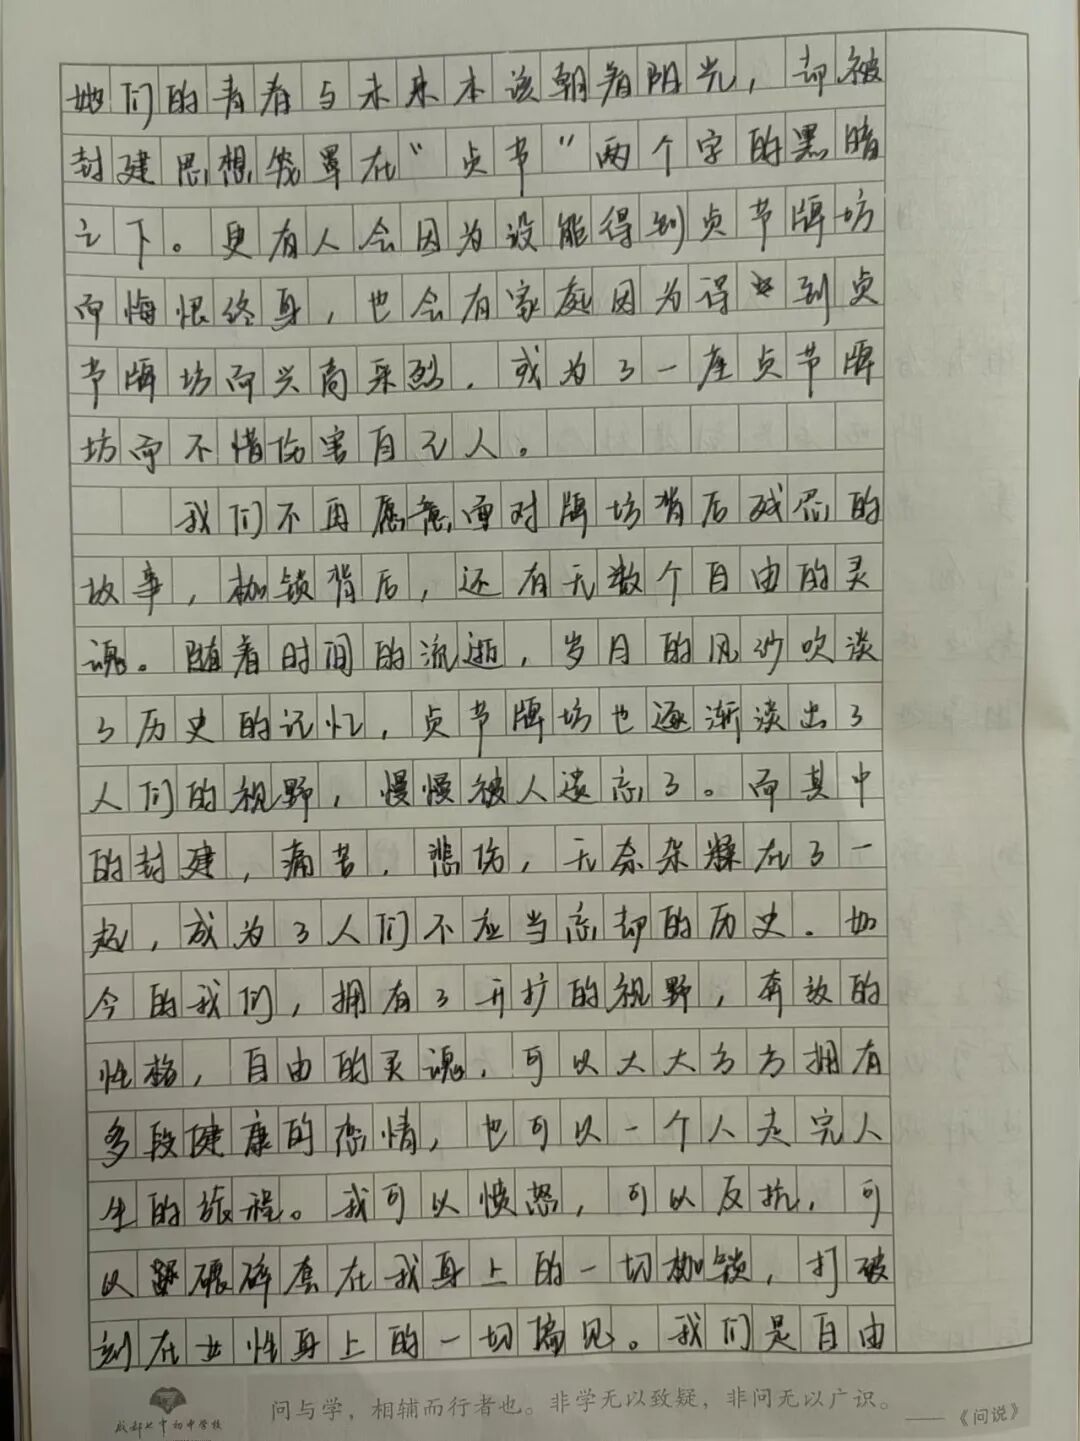 她们的青春与未来本该朝着阳光，却被
封建思想笼罩在“贞节”两个字的黑暗
之下。更有人会因为没能得到贞节牌坊
而悔恨终身，也会有家庭因为得到贞
节牌坊而兴高采烈，或为了一座贞节牌
坊而不惜伤害自己人。
我们不再愿意面对牌坊背后残忍的
故事，枷锁背后，还有无数个自由的灵
魂。随着时间的流逝，岁月的风沙吹淡
了历史的记忆，贞节牌坊也逐渐淡出了
人们的视野，慢慢被人遗忘了。而其中
的封建，痛苦，悲伤，无奈杂糅在了一
起，成为了人们不应当忘却的历史。如
今的我们，拥有了开扩的视野，奔放的
性格，自由的灵魂，可以大大方方拥有
多段健康的恋情，也可以一个人走完人
生的旅程。我可以愤怒，可以反抗，可
以碾碎套在我身上的一切枷锁，打破
刻在女性身上的一切偏见。我们是自由
成都七中初中学校
问与学，相辅而行者也。非学无以致疑，非问无以广识。
——《问说》